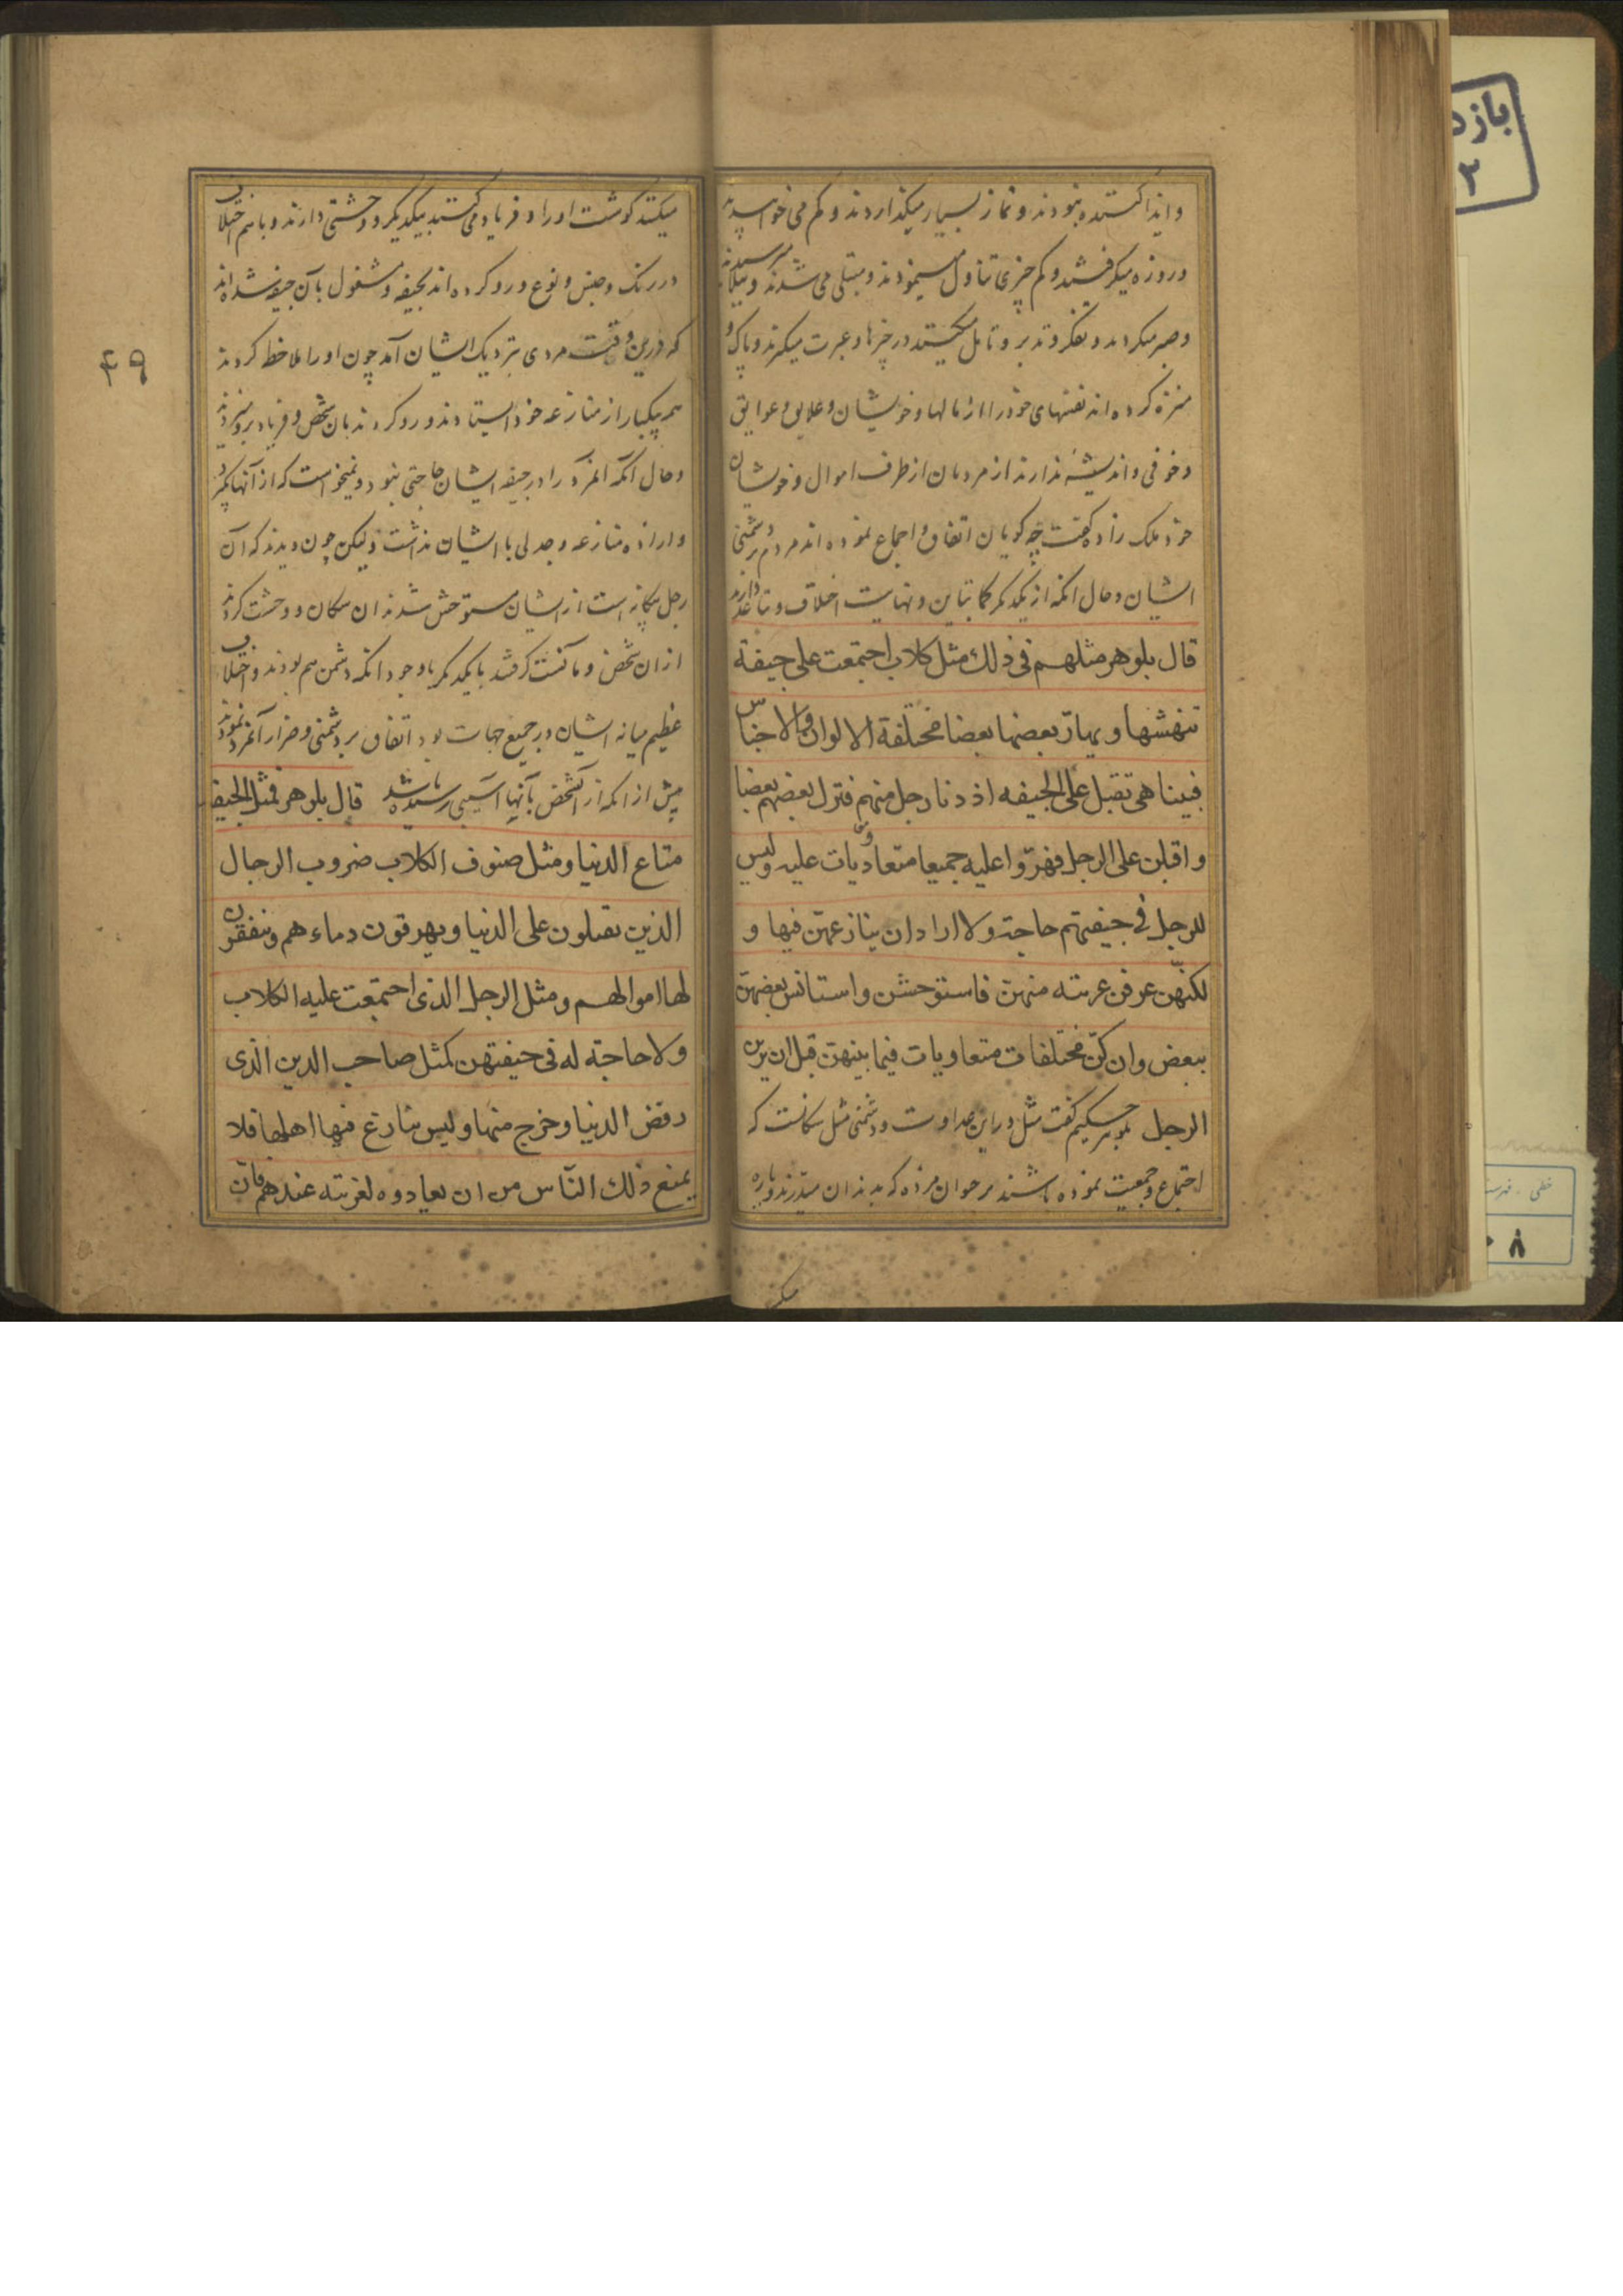 و ایذا کننده نبودند و نماز بسیار میکذاردند و کم می خوابیدند
و روزه میکرفتند و کم چیزی تناول مینمودند و مبتلی می شدند و ببلا میرسیدند
و صبر میکردند و تفکر و تدبر و تامل میکنند در چیزها و عبرت میکیرند و پاک و
منزه کرده اند نفسهای خود را از مالها و خویشان و علایق و عوایق
و خوفی و اندیشهٔ ندارند از مردمان از طرف اموال و خویشان
خود ملک زاده کفت چه کویان اتفاق و اجماع نموده اند مردم بر دشمنی
ایشان و حال انکه از یکدیکر کمال تباین و نهایت اختلاف و تباعد دارند
قال بلوهر مثلهم فی ذلك مثل كلاب اجتمعت علی جیفة
تنهشها و یهارّ بعضها بعضا مختلفة الالوان والاجناس
فبینا هی تقبل علی الجیفه اذ دنا رجل منهم فترك بعضهم بعضا
و اقبلن علی الرجل فهرّوا علیه جمیعا متعاویات علیه ولیس
للرجل فی جیفتهم حاجة ولا اراد ان ینازعهن فیها و
لکنهّن عرفن غربته منهن فاستوحشن و استانس بعضهن
ببعض وان كنّ مختلفات متعاویات فیما بینهن قبل ان یرین
الرجل بلوهر حکیم کفت مثل در این عداوت و دشمنی مثل سکانست که
اجتماع و جمعیت نموده باشند بر حیوان مرده که بدندان میدرند و پاره
میکنند
میکنند کوشت او را و فریاد می کنند بیکدیکر و وحشتی دارند و با هم اختلاف
در رنک و جنس و نوع و رو کرده اند بجیفه و مشغول بآن جیفه شده اند
که درین وقت مردی بنزدیک ایشان آمد چون او را ملاحظه کردند
همه یکبار از منازعه خود ایستادند و رو کردند بان شخص و فریاد بر او میزدند
و حال آنکه آنمرد را در جیفه ایشان حاجتی نبود و نمیخواست که از آنها بکیرد
و اراده منازعه و جدلی با ایشان نداشت ولیکن چون دیدند که آن
رجل بیکانه است از ایشان مستوحش شدند ان سکان و وحشت کردند
از ان شخص و مآنست کرفتند با یکدیکر با وجود انکه دشمن هم بودند و اختلاف
عظیم میانه ایشان در جمیع جهات بود اتفاق بر دشمنی و ضرار آنمرد نمودند
پیش از انکه از آنشخص بآنها آسیبی رسیده باشد قال بلوهر فمثل الجیفه
متاع الدنیا ومثل صنوف الكلاب ضروب الرجال
الذین یقبلون علی الدنیا و یهرقون دماءهم و ینفقون
لها اموالهم ومثل الرجل الذی اجتمعت علیه الكلاب
ولا حاجة له فی جیفتهن كمثل صاحب الدین الذی
رفض الدنیا و خرج منها ولیس ینازع فیها اهلها فلا
یمنع ذلك النّاس من ان یعادوه لغربته عندهم فانّ
۴۹
بازد
۲
خطی . فهرست
۸